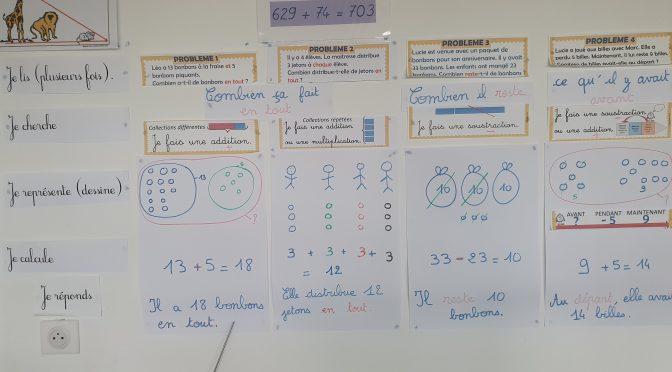 629 + 74 = 703
Je lis (plusieurs fois).
Je cherche
Je représente (dessine)
Je calcule
Je réponds
PROBLEME 1
Léo a 13 bonbons à la fraise et 5
bonbons piquants.
Combien a-t-il de bonbons en tout ?
Combien ça fait
en tout
Collections différentes
Je fais une addition.
13
5
?
13 + 5 = 18
Il a 18 bonbons
en tout.
PROBLEME 2
Il y a 4 élèves. La maitresse distribue
3 jetons à chaque élèves.
Combien distribue-t-elle de jetons en
tout ?
Collections répétées
Je fais une addition
ou une multiplication.
3 + 3 + 3 + 3
= 12
Elle distribue 12
jetons en tout.
PROBLEME 3
Lucie est venue avec un paquet de
bonbons pour son anniversaire. Il y avait
33 bonbons. Les enfants ont mangé 23
bonbons. Combien reste-t-il de bonbons
Combien il reste
Je fais une soustraction.
10 10 10
33 - 23 = 10
Il reste 10
bonbons.
PROBLEME 4
Lucie a joué aux billes avec Marc. Elle a
perdu 5 billes. Maintenant, il lui reste 9 billes.
Combien de billes avait-elle au départ ?
ce qu'il y avait
avant
Je fais une soustraction
ou une addition.
5
9
?
AVANT PENDANT MAINTENANT
? -5 9
9 + 5 = 14
Au départ, elle avait
14 billes.